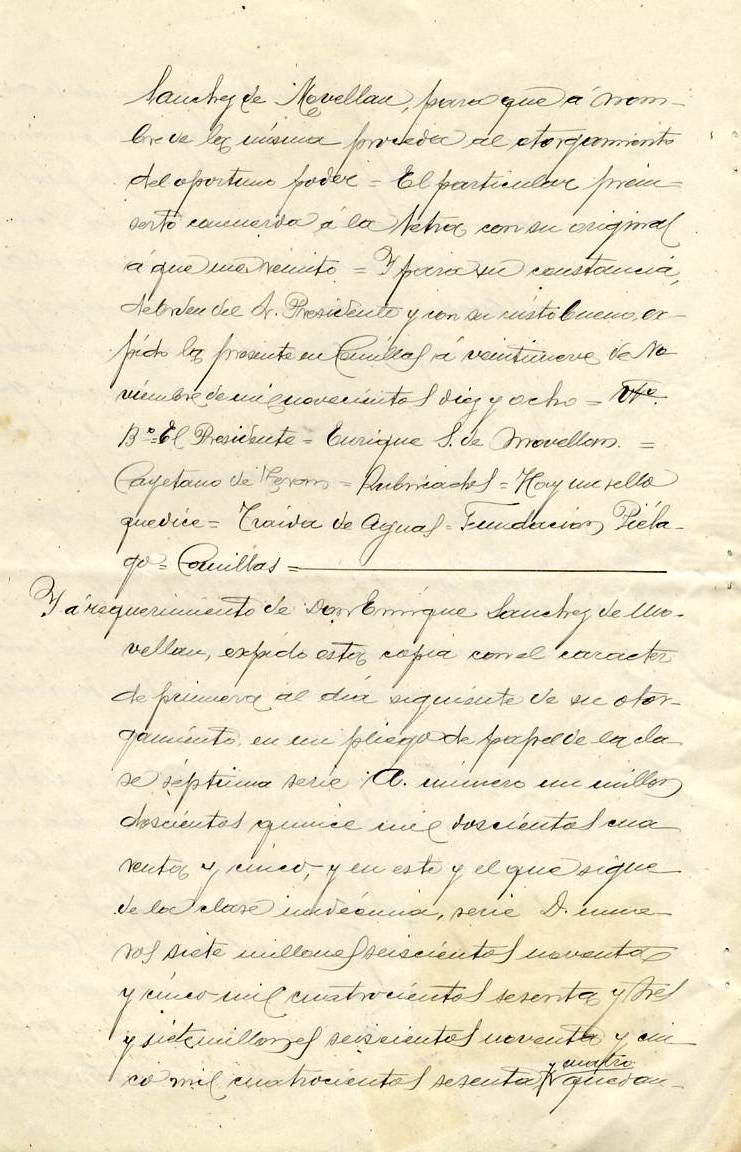 Sanchez de Movellan, para que á nom-
bre de la misma proceda al otorgamiento
del oportuno poder = El particular prein-
serto concuerda á la letra con su original
á que me remito = Y para su constancia,
de orden del Sr. Presidente y con su visto bueno, ex-
pido la presente en Comillas á veintinueve de No
viembre de mil novecientos diez y ocho = Vto.
Bº = El Presidente = Enrique S. de Movellan. =
Cayetano de = Rubricados = Hay un sello
que dice = Traida de Aguas = Fundacion Piéla-
go = Comillas =
Y á requerimiento de Don Enrique Sanchez de Mo-
vellan, expido esta copia con el caracter
de primera al dia siguiente de su otor-
gamiento en un pliego de papel de la cla
se séptima serie A. número un millon
doscientos quince mil doscientos cua
renta y cinco, y en este y el que sigue
de la clase undécima, serie D. nume
ros siete millones seiscientos noventa
y cinco mil cuatrocientos sesenta y tres
y siete millones seiscientos noventa y cin
y cuatro
co mil cuatrocientos sesenta quedan-